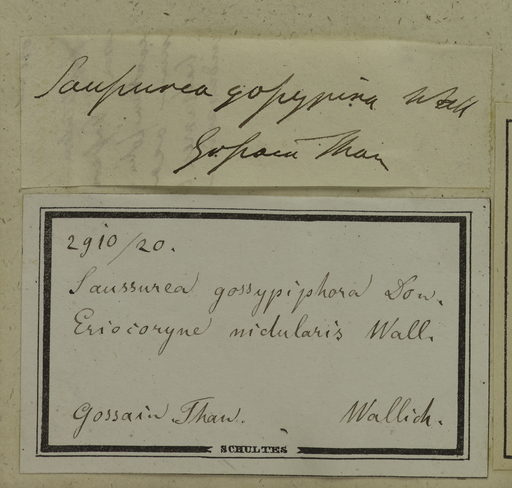 Saussurea gossypina Wall
Gossain Than
2910/20.
Saussurea gossypiphora Don.
Eriocoryne nidularis Wall.
Gossain Than. Wallich.
SCHULTES